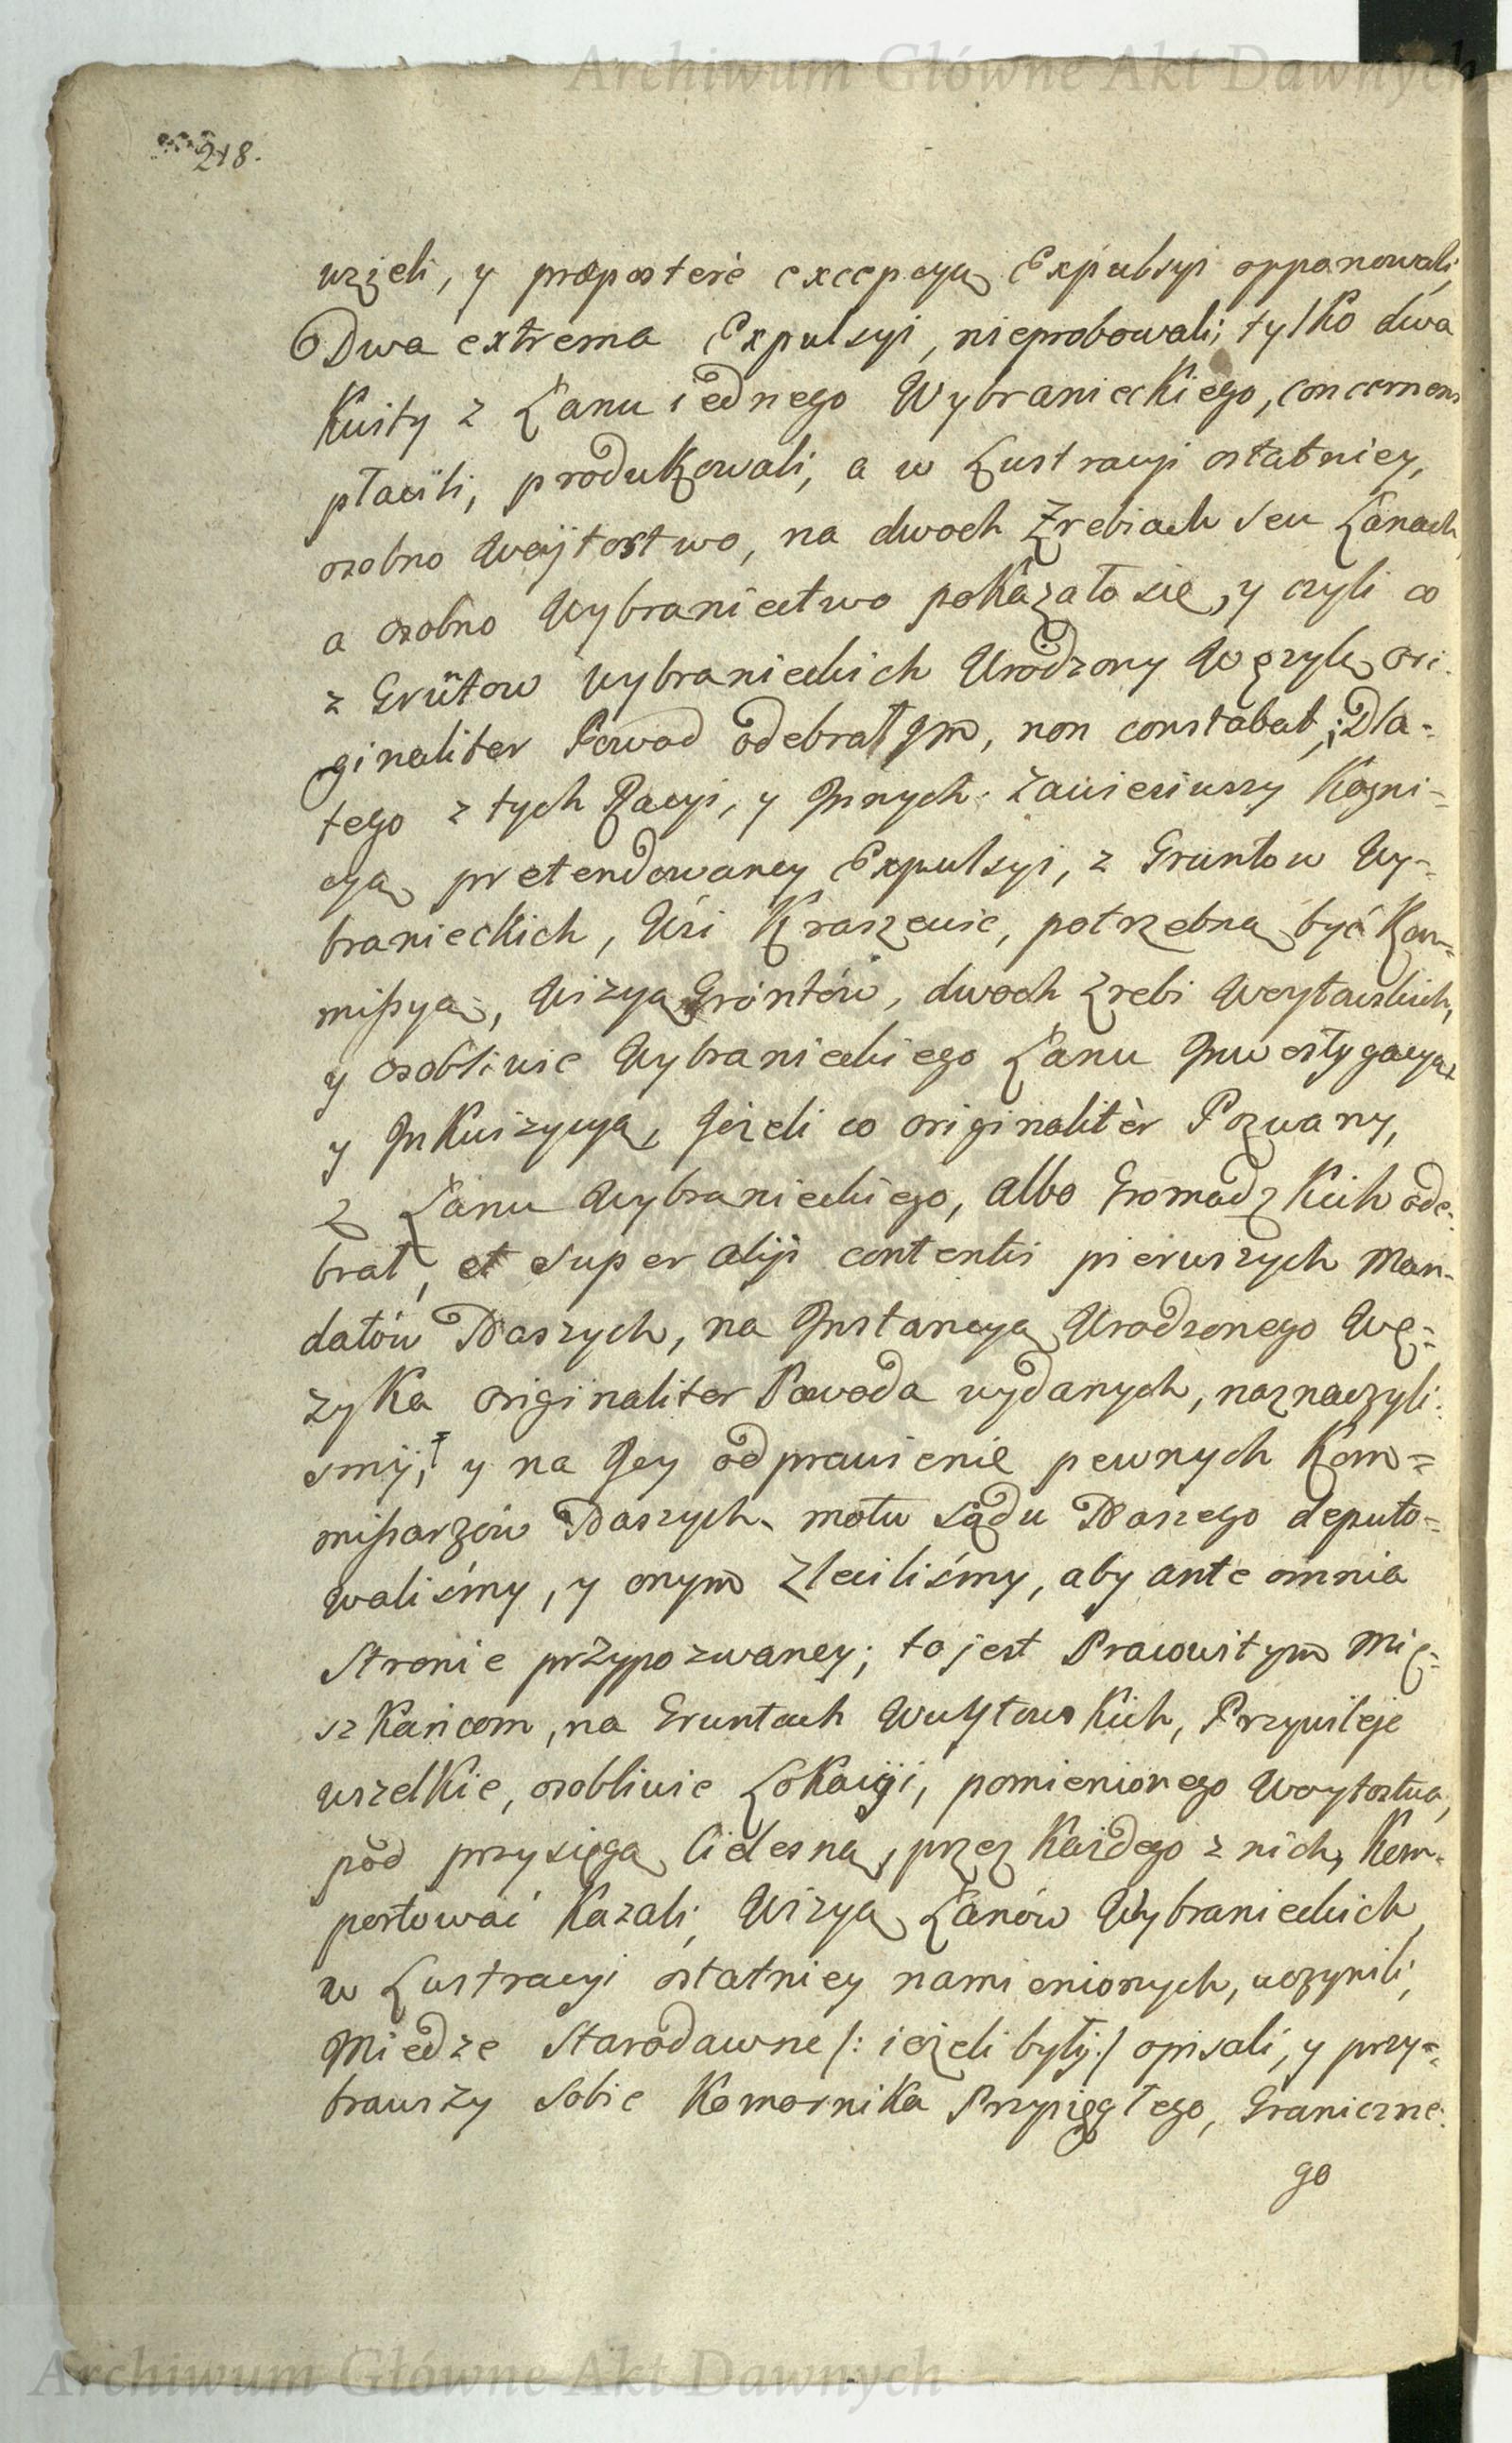 Archiwum Główne Akt Dawnych
218.
wzięli, y præpostere excepcyą Expulsyi opponowali,
Dwa extrema Expulsyi, nieprobowali; tylko dwa
Kwity z Łanu iednego Wybranieckiego, concernens
płacili, produkowali, a w Lustracyi ostatniey,
osobno Woytostwo, na dwoch Zrebiach seu Łanach,
a osobno Wybraniectwo pokazało się, y czyli co
z Grūtow Wybranieckich Urodzony Wężyk, ori-
ginaliter Powod odebrał ym, non constabat; Dla-
tego z tych Racyi, y Jnnych. Zawiesiwszy Kogni-
cyą pretendowaney Expulsyi, z Gruntow Wy-
branieckich, Wsi Kraszewic, potrzebną być Kom-
missyą, Wizyą Gróntów, dwoch Zrebi Woytowskich,
y osobliwie Wybranieckiego Łanu Jnwestygacyą
y Jnkwizycyą, Jeżeli co originalitèr Pozwany,
z Łanu Wybranieckiego, albo Gromadzkich ode-
brał, et super alijs contentis pierwszych Man-
datów Naszych, na Jnstancyą Urodzonego Wę-
zyka originaliter Powoda wydanych, naznaczyli-
smÿ, y na Jey odprawienie pewnych Kom-
missarzów Naszych motu Sądu Naszego deputo-
waliśmy, y onym Zleciliśmy, aby ante omnia
Stronie przypozwaney; to jest Pracowitym Mię-
szkańcom, na Gruntach Woytowskich, Przywileje
wszelkie, osobliwie Lokacyi, pomienionego Woytostwa,
pod przysięgą Cielesną, przez Każdego z nich, Kom-
portować Kazali, Wizyą Łanów Wybranieckich,
w Lustracyi ostatniey namienionych, uczynili,
Miedze Starodawne /: ieżeli były :/ opisali, y przy-
brawszy Sobie Komornika Przysięgłego, Graniczne-
go
Archiwum Główne Akt Dawnych